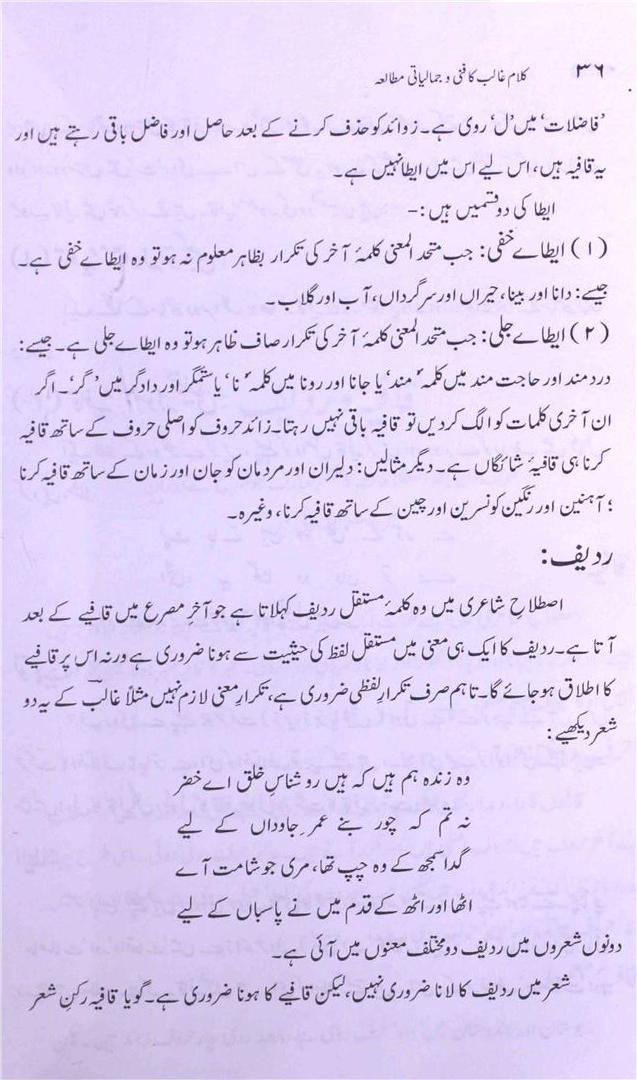 ۳۶ کلام غالب کا فنی و جمالیاتی مطالعہ
’فاضلات‘ میں ’ل‘ روی ہے۔ زوائد کو حذف کرنے کے بعد حاصل اور فاضل باقی رہتے ہیں اور
یہ قافیہ ہیں، اس لیے اس میں ایطا نہیں ہے۔
ایطا کی دو قسمیں ہیں:-
(۱) ایطاے خفی: جب متحد المعنی کلمۂ آخر کی تکرار بظاہر معلوم نہ ہو تو وہ ایطاے خفی ہے۔
جیسے: دانا اور بینا، حیراں اور سرگرداں، آب اور گلاب۔
(۲) ایطاے جلی: جب متحد المعنی کلمۂ آخر کی تکرار صاف ظاہر ہو تو وہ ایطاے جلی ہے۔ جیسے:
درد مند اور حاجت مند میں کلمۂ ’مند‘ یا جانا اور رونا میں کلمۂ ’نا‘ یا ستمگر اور دادگر میں ’گر‘۔ اگر
ان آخری کلمات کو الگ کر دیں تو قافیہ باقی نہیں رہتا۔ زائد حروف کو اصلی حروف کے ساتھ قافیہ
کرنا ہی قافیۂ شائگاں ہے۔ دیگر مثالیں: دلیران اور مردمان کو جان اور زمان کے ساتھ قافیہ کرنا
؛ آہنین اور رنگین کو نسرین اور چین کے ساتھ قافیہ کرنا، وغیرہ۔
ردیف:
اصطلاحِ شاعری میں وہ کلمۂ مستقل ردیف کہلاتا ہے جو آخرِ مصرع میں قافیے کے بعد
آتا ہے۔ ردیف کا ایک ہی معنی میں مستقل لفظ کی حیثیت سے ہونا ضروری ہے ورنہ اس پر قافیے
کا اطلاق ہو جائے گا۔ تاہم صرف تکرارِ لفظی ضروری ہے، تکرارِ معنی لازم نہیں مثلاً غالبؔ کے یہ دو
شعر دیکھیے:
وہ زندہ ہم ہیں کہ ہیں روشناسِ خلق اے خضر
نہ تم کہ چور بنے عمرِ جاوداں کے لیے
گدا سمجھ کے وہ چپ تھا، مری جو شامت آے
اٹھا اور اٹھ کے قدم میں نے پاسباں کے لیے
دونوں شعروں میں ردیف دو مختلف معنوں میں آئی ہے۔
شعر میں ردیف کا لانا ضروری نہیں، لیکن قافیے کا ہونا ضروری ہے۔ گویا قافیہ رکنِ شعر